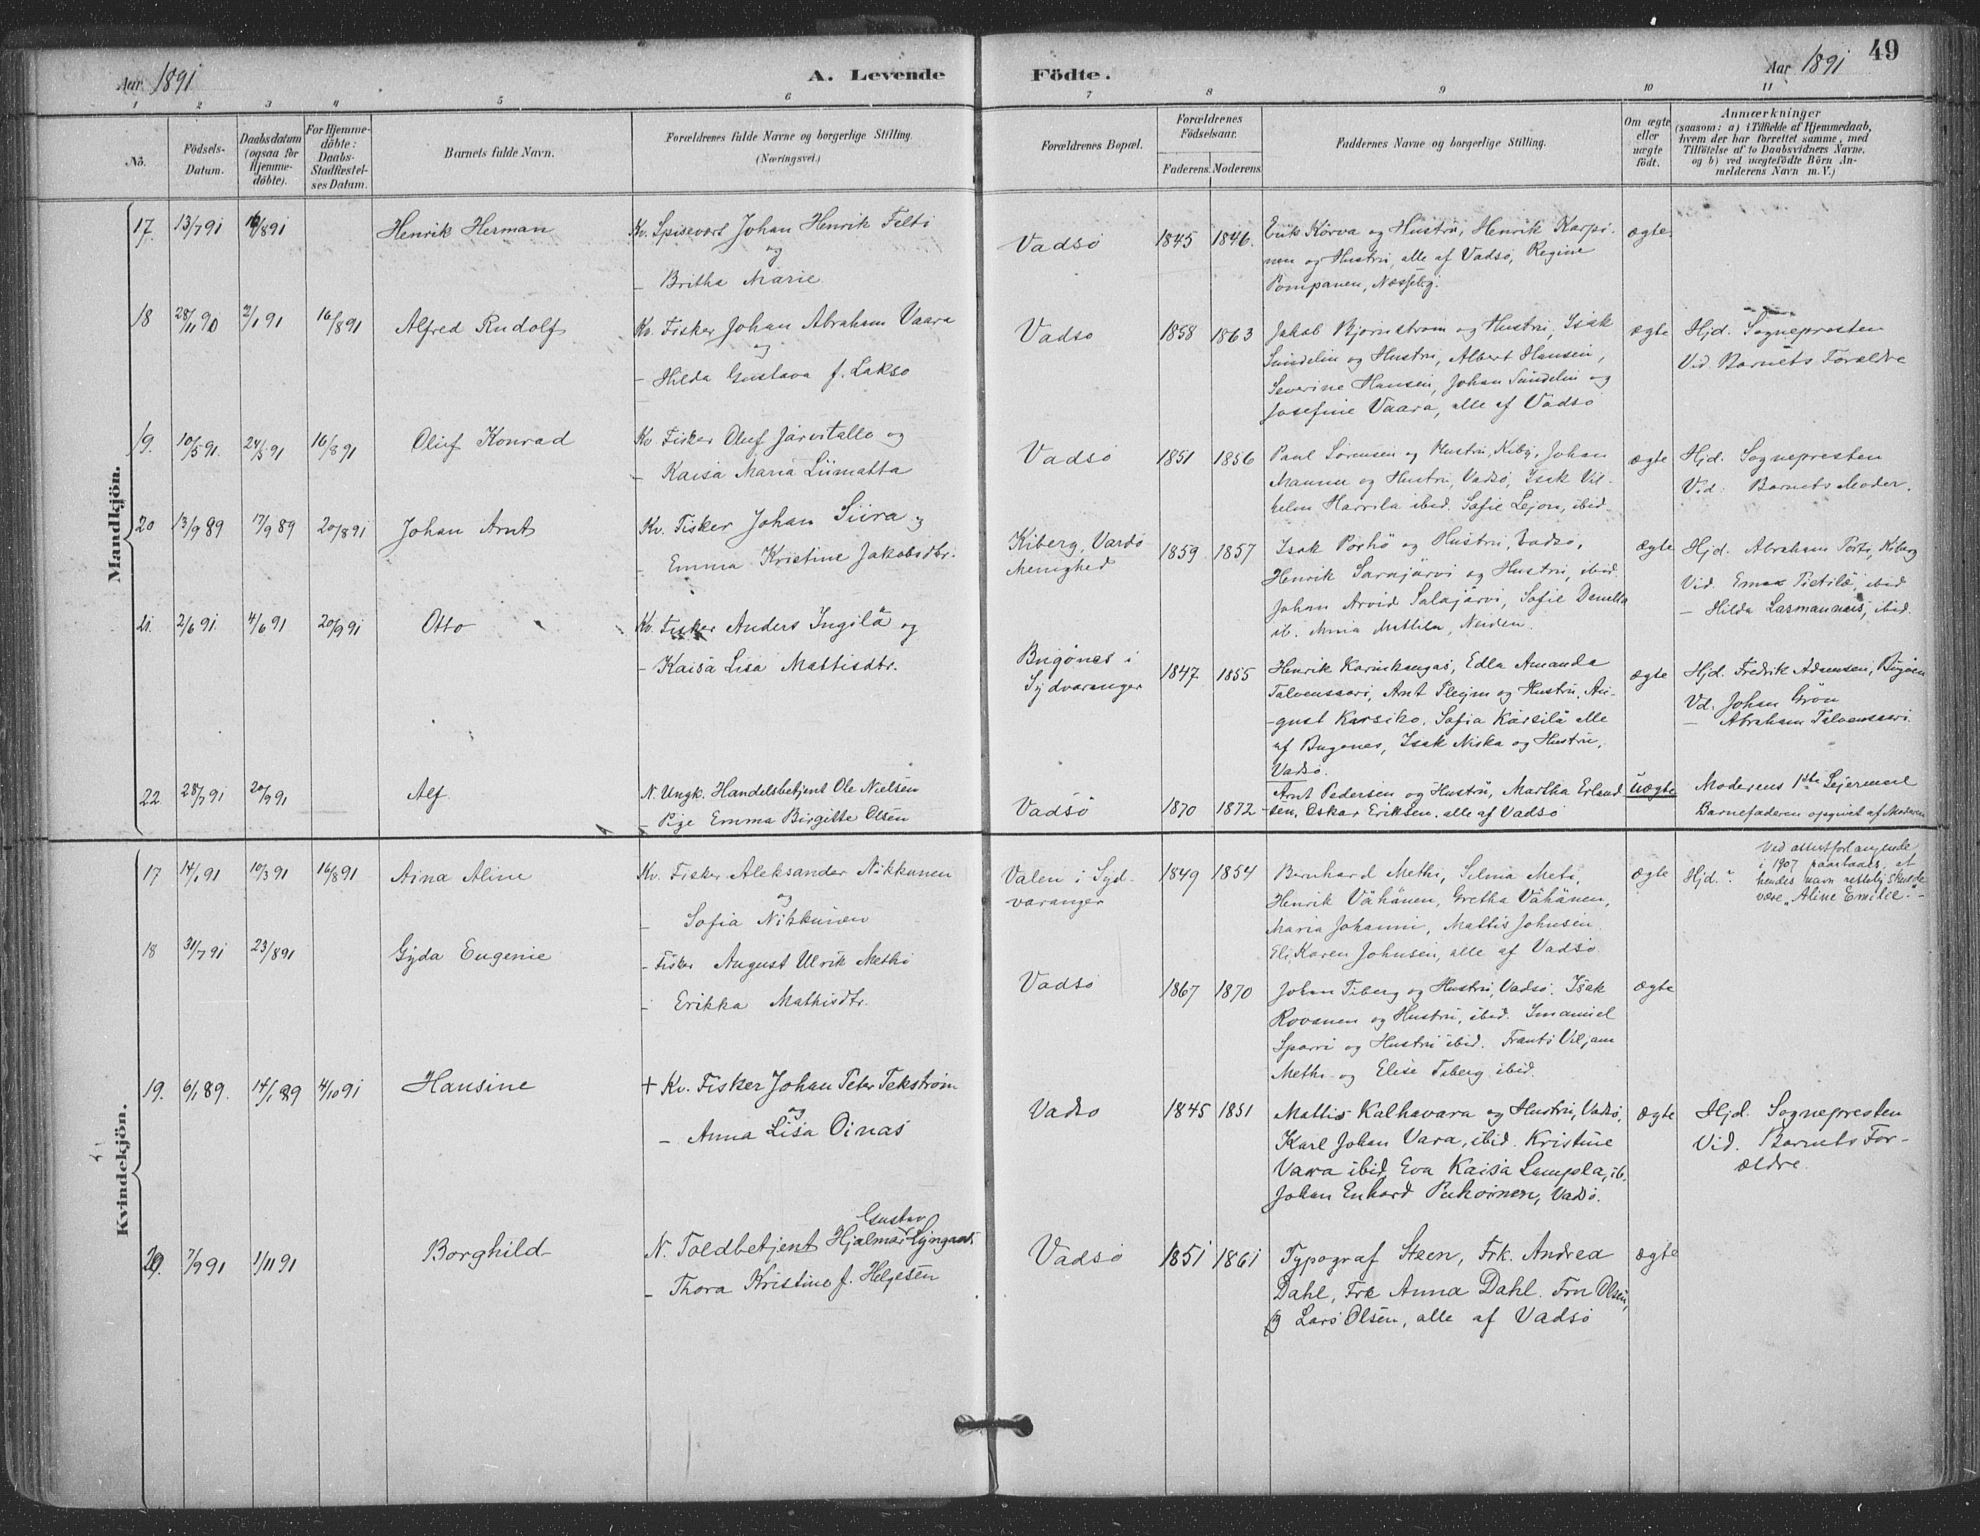 49
Aar 1891
A. Levende
Födte.
Aar 1891
1 2 3 4 5 6 7 8 9 10 11
No.
Födsels-
Datum.
Daabsdatum
(ogsaa for
Hjemme-
döbte).
For Hjemme-
döbte:
Daabs-
Stadfæstel-
ses Datum.
Barnets fulde Navn.
Forældrenes fulde Navne og borgerlige Stilling.
(Næringsvei.)
Forældrenes Bopæl.
Forældrenes
Födselsaar.
Faderens. Moderens.
Faddernes Navne og borgerlige Stilling.
Om ægte
eller
uægte
födt.
Anmærkninger
(saasom: a) i Tilfælde af Hjemmedaab,
hvem der har forrettet samme, med
Tilföielse af to Daabsvidners Navne,
og b) ved uægtefödte Börn An-
melderens Navn m. V.)
Mandkjön.
17. 13/7 91 16/8 91 Henrik Herman
Kv. Spisevært Johan Henrik Felti
og
- Britha Marie
Vadsö 1845 1846.
Erik Körva og Hustru, Henrik Karpi-
nen og Hustru, alle af Vadsö, Regine
Pompanen, Næsseby.
ægte.
18 28/11 90 2/1 91 16/8 91 Alfred Rudolf
Kv. Fisker Johan Abraham Vaara
og
- Hilda Gustava f. Lakso
Vadsö 1858 1863
Jakob Bjornstrom og Hustru, Isak
Sundelin og Hustru, Albert Hansen,
Severine Hansen, Johan Sundelin og
Josefine Vaara, alle af Vadsö
ægte
Hjd. Sognepresten
Vid Barnets Forældre
19. 10/5 91 24/5 91 16/8 91 Oluf Konrad
Kv. Fisker Oluf Jarvitallo og
- Kaisa Maria Liimatta
Vadsö 1851 1856
Paul Sorensen og Hustru, Kiby, Johan
Mannu og Hustru, Vadsö, Isak Vil-
helm Harrila ibid. Sofie Lejon, ibid.
ægte
Hjd. Sognepresten
Vid. Barnets Moder.
20 13/9 89 17/9 89 20/8 91 Johan Arnt
Kv. Fisker Johan Siira og
- Emma Kristine Jakobsdtr.
Kiberg, Vardö
Menighed
1859 1857
Isak Porhö og Hustru, Vadsö,
Henrik Sarajärvi og Hustru, ibid.
Johan Arvid Salajärvi, Sofie
ib. Mattila, Neiden.
ægte
Hjd. Abraham Kiberg
Vid. Pietilä, ibid
- Hilda ibid.
21. 2/6 91 4/6 91 20/9 91 Otto
Kv. Fisker Anders Ingilä og
- Kaisa Lisa Mattisdtr.
Bugönes i
Sydvaranger
1847 1855
Henrik Karinkangas, Edla Amanda
Talvensaari, Arnt Plejm og Hustru, Au-
gust Karsiko, Sofia Karsilä alle
af Bugones, Isak Niska og Hustru,
Vadsö.
ægte
Hjd. Fredrik Adamsen,
Vd. Johan Grön
- Abraham Talvensaari.
22 28/7 91 20/9 91 Alf
N. Ungk. Handelsbetjent Ole Nielsen
- Pige Emma Birgitte Olsen
Vadsö 1870 1872
Arnt Pedersen og Hustru, Martha Erland-
sen, Oskar Eriksen, alle af Vadsö
uægte
Moderens 1ste Lejermaal
Barnefaderen opgivet af Moderen
Kvindekjön.
17 14/1 91 10/3 91 16/8 91 Aina Aline
Kv. Fisker Aleksander Nikkunen
og
- Sofia Nikkunen
Valen i Syd-
varanger
1849 1854
Bernhard Methi, Selma Meti,
Henrik Vähänen, Gretha Vähänen,
Maria Johanni, Mattis Johnsen
Eli, Karen Johnsen, alle af Vadsö
ægte
Hjd.
Ved attestforlangende
i 1907 paastaaes, at
hendes navn rettelig skulde
være "Aline Emilie".-
18 31/7 91 23/8 91 Gyda Eugenie
- Fisker August Ulrik Methi
- Erikka Mathisdtr.
Vadsö 1867 1870
Johan Tiberg og Hustru, Vadsö. Isak
Rovanen og Hustru, ibid. Imanuel
Sparri og Hustru ibid. Frants Viljam
Methi og Elise Tiberg ibid.
ægte
19. 6/1 89. 14/1 89 4/10 91 Hansine
+ Kv. Fisker Johan Peter Tekström
og
- Anna Lisa Oinas
Vadsö 1845 1851
Mattis Kalhavara og Hustru, Vadsö,
Karl Johan Vara, ibid. Kristine
Vaara ibid, Eva Kaisa Lampela, ib.
Johan Enhard Vadsö.
ægte
Hjd. Sognepresten
Vid. Barnets For-
ældre.
20. 7/9 91 1/11 91 Borghild
Gustav
N. Toldbetjent Hjalmar Lyngaas
- Thora Kristine f. Helgesen
Vadsö 1851 1861
Typograf Steen, Frk. Andrea
Dahl, Frk Anna Dahl. Fru Olsen,
og Lars Olsen, alle af Vadsö
ægte